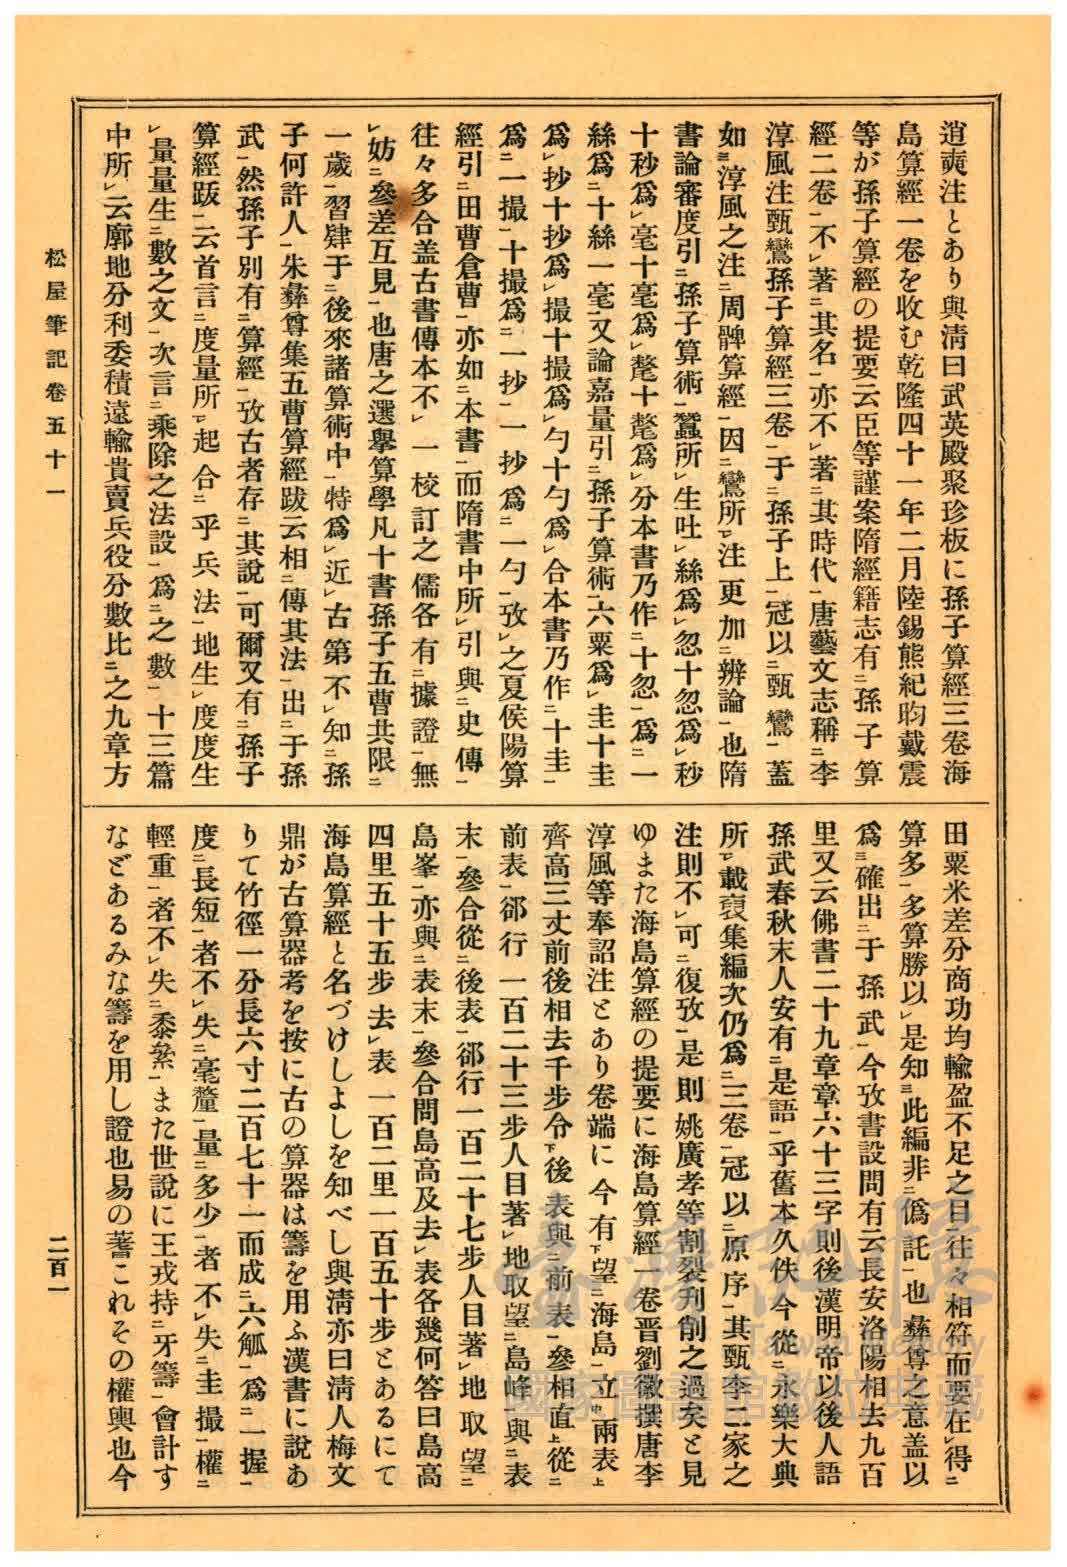 逍爽注とあり與淸曰武英殿聚珍板に孫子算經三卷海
島算經一卷を收む乾隆四十一年二月陸錫熊紀昀戴震
等が孫子算經の提要云臣等謹案隋經籍志有㆓孫子算
經二卷㆒不㆑著㆓其名㆒亦不㆑著㆓其時代㆒唐藝文志稱㆓李
淳風注甄鸞孫子算經三卷㆒于㆓孫子上㆒冠以㆓甄鸞㆒蓋
如㆘淳風之注㆓周髀算經㆒因㆓鸞所㆒㆑注更加㆗辨論㆖也隋
書論審度引㆓孫子算術㆒蠶所㆑生吐㆑絲爲㆑忽十忽爲㆑秒
十秒爲㆑毫十毫爲㆑氂十氂爲㆑分本書乃作㆘十忽㆒爲㆓一
絲爲㆓十絲一毫㆒又論嘉量引㆓孫子算術㆒六粟爲㆑圭十圭
爲㆑抄十抄爲㆑撮十撮爲㆑勺十勺爲㆑合本書乃作㆘十圭㆒
爲㆓一撮㆒十撮爲㆓一抄㆒一抄爲㆓一勺㆒攷㆑之夏侯陽算
經引㆓田曹倉曹㆒亦如㆓本書㆒而隋書中所㆑引與㆓史傳㆒
往々多合盖古書傳本不㆑一校訂之儒各有㆓據證㆒無
㆑妨㆓參差互見㆒也唐之選擧算學凡十書孫子五曹共限㆓
一歲㆒習肄于㆓後來諸算術中㆒特爲㆑近㆑古第不㆑知㆓孫
子何許人㆒朱彝尊集五曹算經跋云相㆓傳其法㆒出㆓于孫
武㆒然孫子別有㆓算經㆒攷古者存㆓其說㆒可爾又有㆓孫子
算經跋㆒云首言㆘度量所㆑起合㆗乎兵法㆒地生㆑度度生
㆑量量生㆑數之文㆖次言㆓乘除之法設㆒爲㆓之數㆒十三篇
中所㆑云廓地分利委積遠輸貴賣兵役分數比㆓之九章方
田粟米差分商功均輸盈不足之目往々相符而要在㆑得㆓
算多㆒多算勝以㆑是知㆘此編非㆓僞託㆒也彝尊之意盖以
爲㆘確出㆓于孫武㆒今攷書設問有云長安洛陽相去九百
里又云佛書二十九章章六十三字則後漢明帝以後人語
孫武春秋末人安有㆓是語㆒乎舊本久佚今從㆓永樂大典
所㆑載裒集編次仍爲㆓三卷㆒冠以㆓原序㆒其甄李二家之
注則不㆑可㆓復攷㆒是則姚廣孝等割裂刋削之過矣と見
ゆまた海島算經の提要に海島算經一卷晋劉徽撰唐李
淳風等奉詔注とあり卷端に今有㆘望㆓海島㆒立㆗兩表㆖
齊高三丈前後相去千步令㆘後表與㆓前表㆒參相直㆖從㆓
前表㆒郤行一百二十三步人目著㆑地取望㆓島峰㆒與㆓表
末㆒參合從㆓後表㆒郤行一百二十七步人目著㆑地取望㆓
島峯㆒亦與㆓表末㆒參合問島高及去㆑表各幾何答曰島高
四里五十五步去㆑表一百二里一百五十步とあるにて
海島算經と名づけしよしを知べし與淸亦曰淸人梅文
鼎が古算器考を按に古の算器は籌を用ふ漢書に說あ
りて竹徑一分長六寸二百七十一而成㆓六觚㆒爲㆓一握㆒
度㆓長短㆒者不㆑失㆓毫釐㆒量㆓多少㆒者不㆑失㆓圭撮㆒權㆓
輕重㆒者不㆑失㆓黍絫㆒また世說に王戎持㆓牙籌㆒會計す
などあるみな籌を用し證也易の蓍これその權輿也今
松屋筆記卷五十一
二百一
臺灣記憶
Taiwan Memory
國家圖書館數位典藏